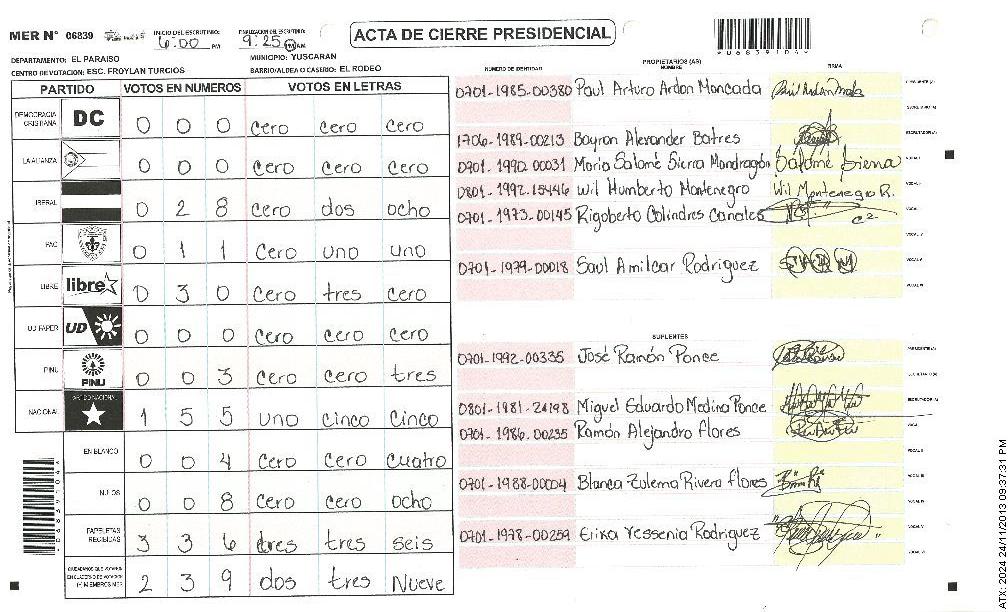 MER N° 06839
INICIO DEL ESCRUTINIO: 6:00 PM
FINALIZACION DEL ESCRUTINIO: 9:25 PM
ACTA DE CIERRE PRESIDENCIAL
06839104
DEPARTAMENTO: EL PARAISO
MUNICIPIO: YUSCARAN
CENTRO DE VOTACION: ESC. FROYLAN TURCIOS
BARRIO/ALDEA O CASERIO: EL RODEO
PARTIDO VOTOS EN NUMEROS VOTOS EN LETRAS
DEMOCRACIA CRISTIANA DC 0 0 0 Cero Cero Cero
LA ALIANZA 0 0 0 Cero Cero Cero
LIBERAL 0 2 8 Cero dos ocho
PAC 0 1 1 Cero uno uno
LIBRE libre 0 3 0 Cero tres Cero
UD FAPER UD 0 0 0 Cero Cero Cero
PINU PINU 0 0 3 Cero Cero tres
NACIONAL 1 5 5 uno Cinco Cinco
EN BLANCO 0 0 4 Cero Cero Cuatro
NULOS 0 0 8 Cero Cero ocho
PAPELETAS RECIBIDAS 3 3 6 tres tres seis
2 3 9 dos tres Nueve
PROPIETARIOS (AS)
NUMERO DE IDENTIDAD NOMBRE FIRMA
0701-1985-00380 Paul Arturo Ardon Moncada
1706-1989-00213 Bayron Alexander Batres
0701-1990-00031 Maria Salomé Sierra Mondragón Salomé Sierra
0801-1992-15446 Wil Humberto Montenegro Wil Montenegro R.
0701-1973-00145 Rigoberto Colindres Canales
0701-1979-00018 Saul Amilcar Rodriguez
SUPLENTES
0701-1992-00335 José Ramón Ponce
0801-1981-24198 Miguel Eduardo Medina Ponce
0701-1986-00235 Ramón Alejandro Flores
0701-1988-00004 Blanca Zulema Rivera Flores
0701-1978-00259 Erika Yessenia Rodriguez
ATX: 2024 24/11/2013 09:37:31 PM